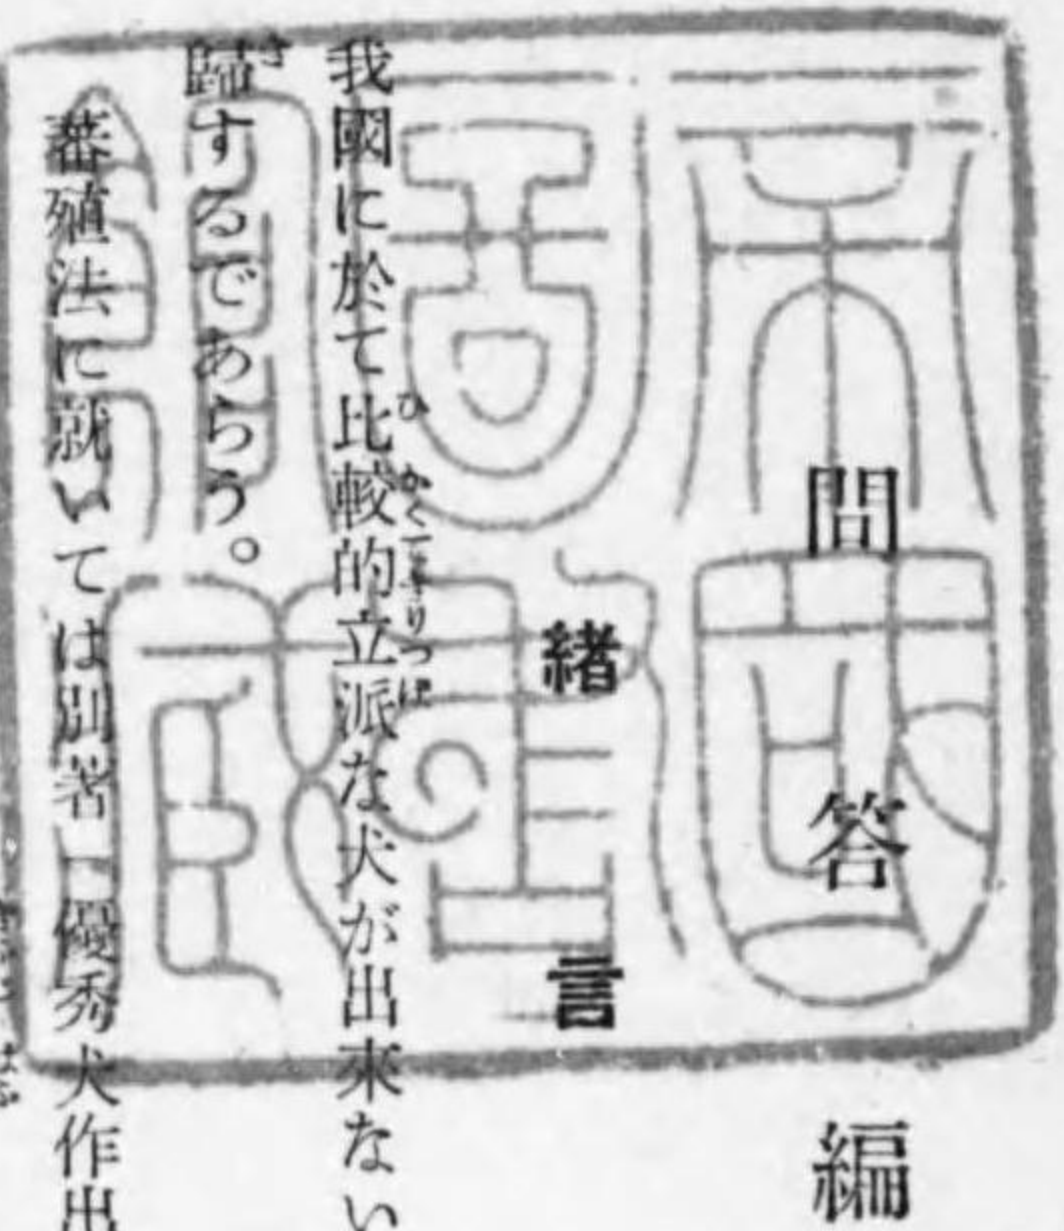 問答編
緒言
我國に於て比較的立派な犬が出來ない
歸するであらう。
蕃殖法に就いては別著「優秀犬作出